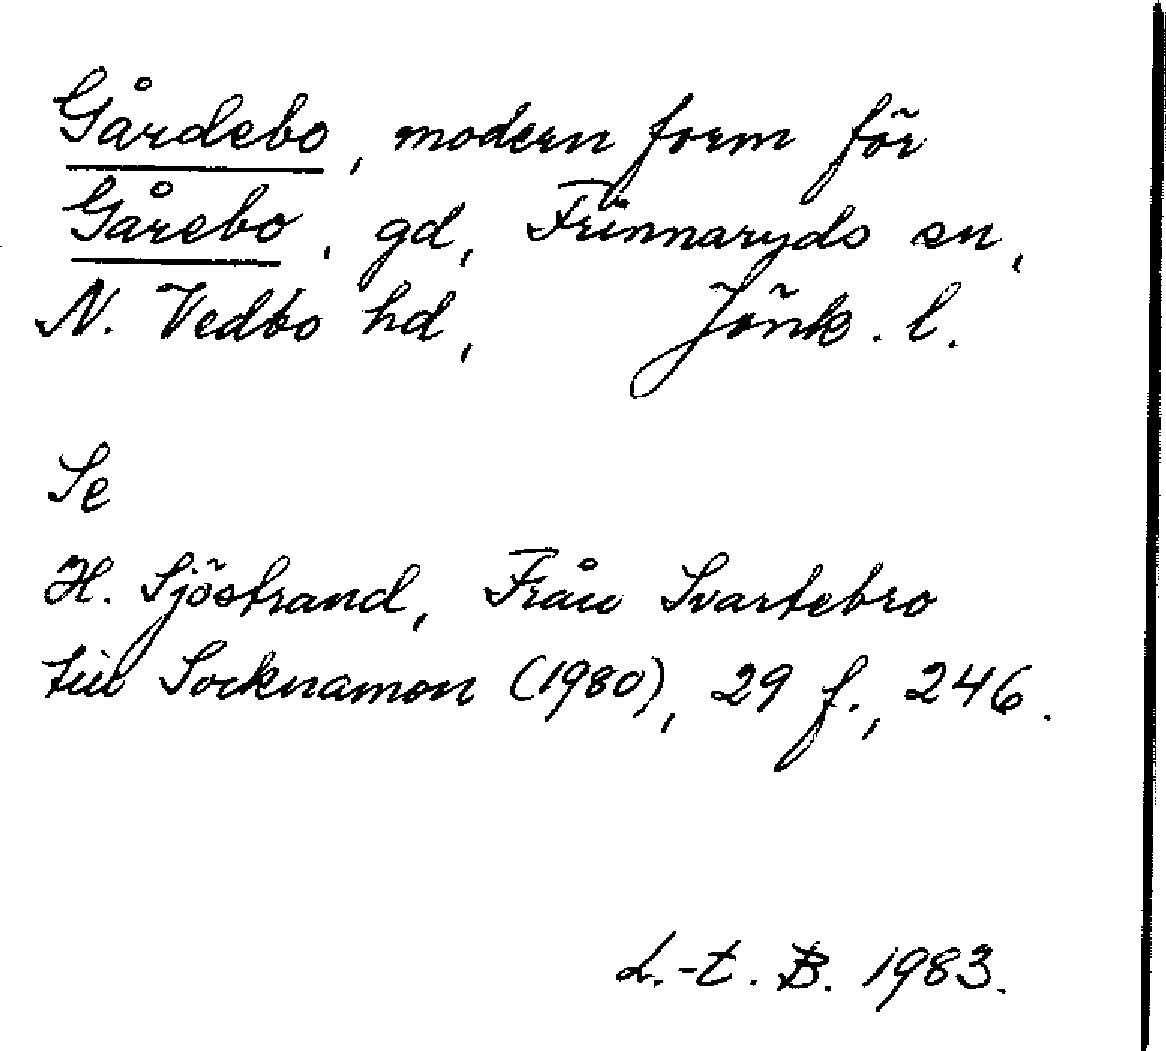 Gårdebo, modern form för
Gårebo, gd, Frinnaryds sn,
N. Vedbo hd, Jönk. l.
Se
H. Sjöstrand, Från Svartebro
till Socknamon (1980), 29 f., 246.
L.-t. B. 1983.